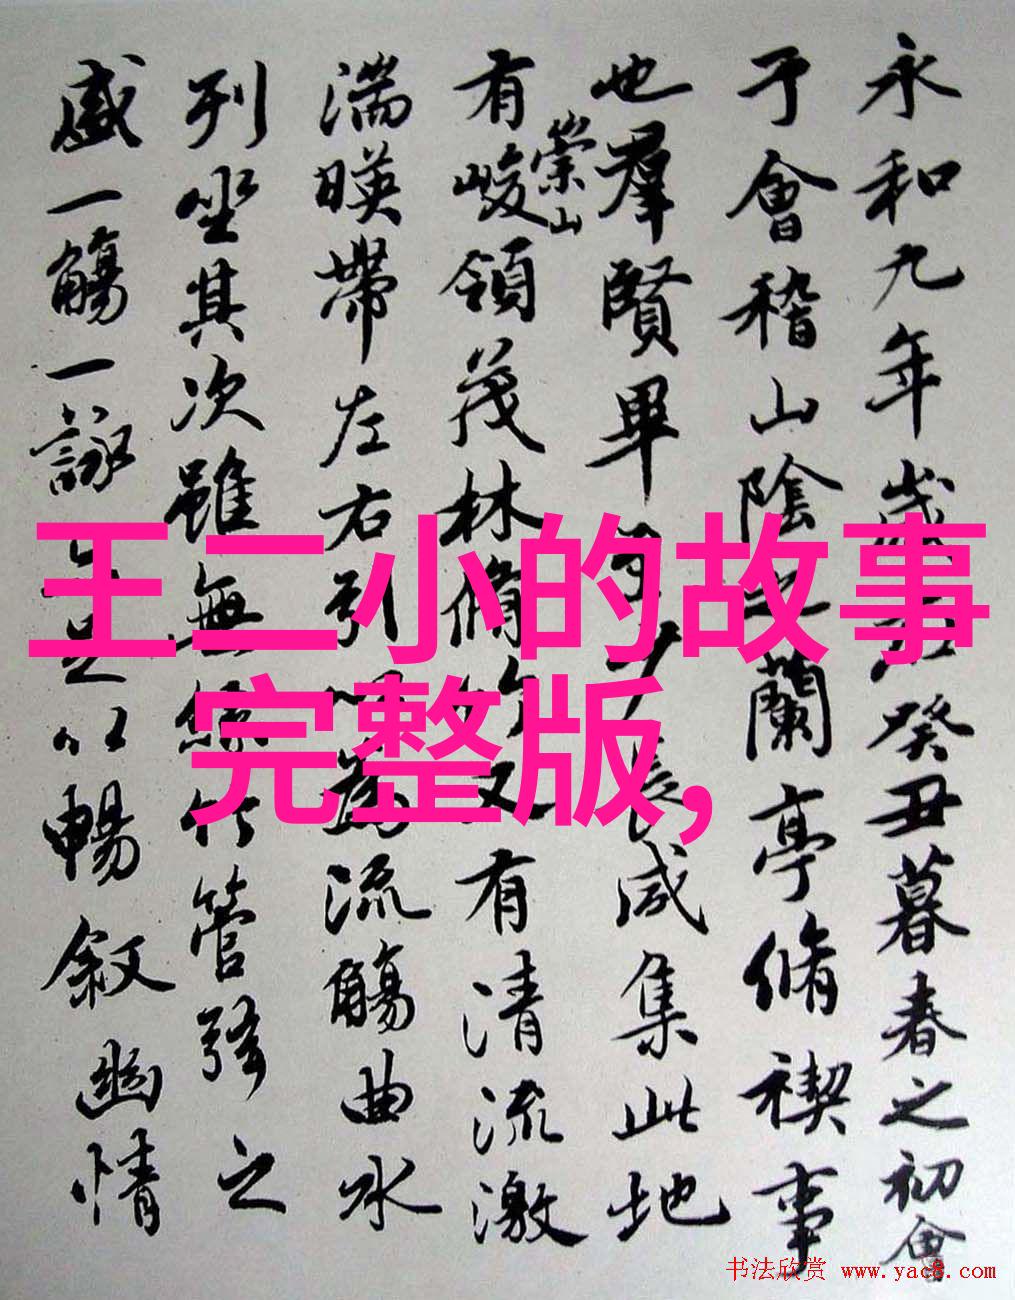 永和九年歲在癸丑暮春之初會
于會稽山陰之蘭亭脩禊事
也羣賢畢至少長咸集此地
有崇山峻領茂林脩竹又有清流激
湍暎帶左右引以為流觴曲水
列坐其次雖無絲竹管弦之
盛一觴一詠亦足以暢敘幽情
王二小的故事
完整版,
书法欣赏 www.yac8.com